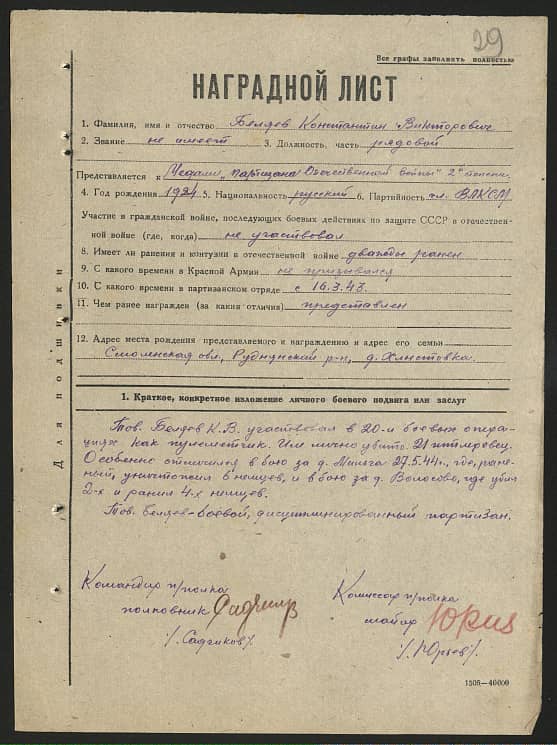 29
Все графы заполнять полностью
НАГРАДНОЙ ЛИСТ
1. Фамилия, имя и отчество Беляев Константин Викторович
2. Звание не имеет 3. Должность, часть рядовой
Представляется к Медали "Партизана Отечественной войны" 2й степени
4. Год рождения 1924 5. Национальность русский 6. Партийность чл. ВЛКСМ
Участие в гражданской войне, последующих боевых действиях по защите СССР в отечествен-
ной войне (где, когда) не участвовал
8. Имеет ли ранения и контузии в отечественной войне дважды ранен
9. С какого времени в Красной Армии не призывался
10. С какого времени в партизанском отряде с 16.3.43.
11. Чем ранее награжден (за какия отличия) представлен
12. Адрес места рождения представляемого к награждению и адрес его семьи
Смоленская обл, Руднянский р-н, д. Хлыстовка.
Для подшивки
1. Краткое, конкретное изложение личного боевого подвига или заслуг
Тов. Беляев К.В. участвовал в 20-и боевых опера-
циях как пулеметчик. Им лично убито 21 гитлеровец.
Особенно отличился в бою за д. 27.5.44г., где, ране-
ный, уничтожил 6 немцев, и в бою за д. Волосово, где убил
2-х и ранил 4-х немцев.
Тов. Беляев - боевой, дисциплинированный партизан.
Командир п/полка
полковник Садчиков
/. Садчиков /.
Комиссар п/полка
майор Юрьев
/. Юрьев /.
1505—40000